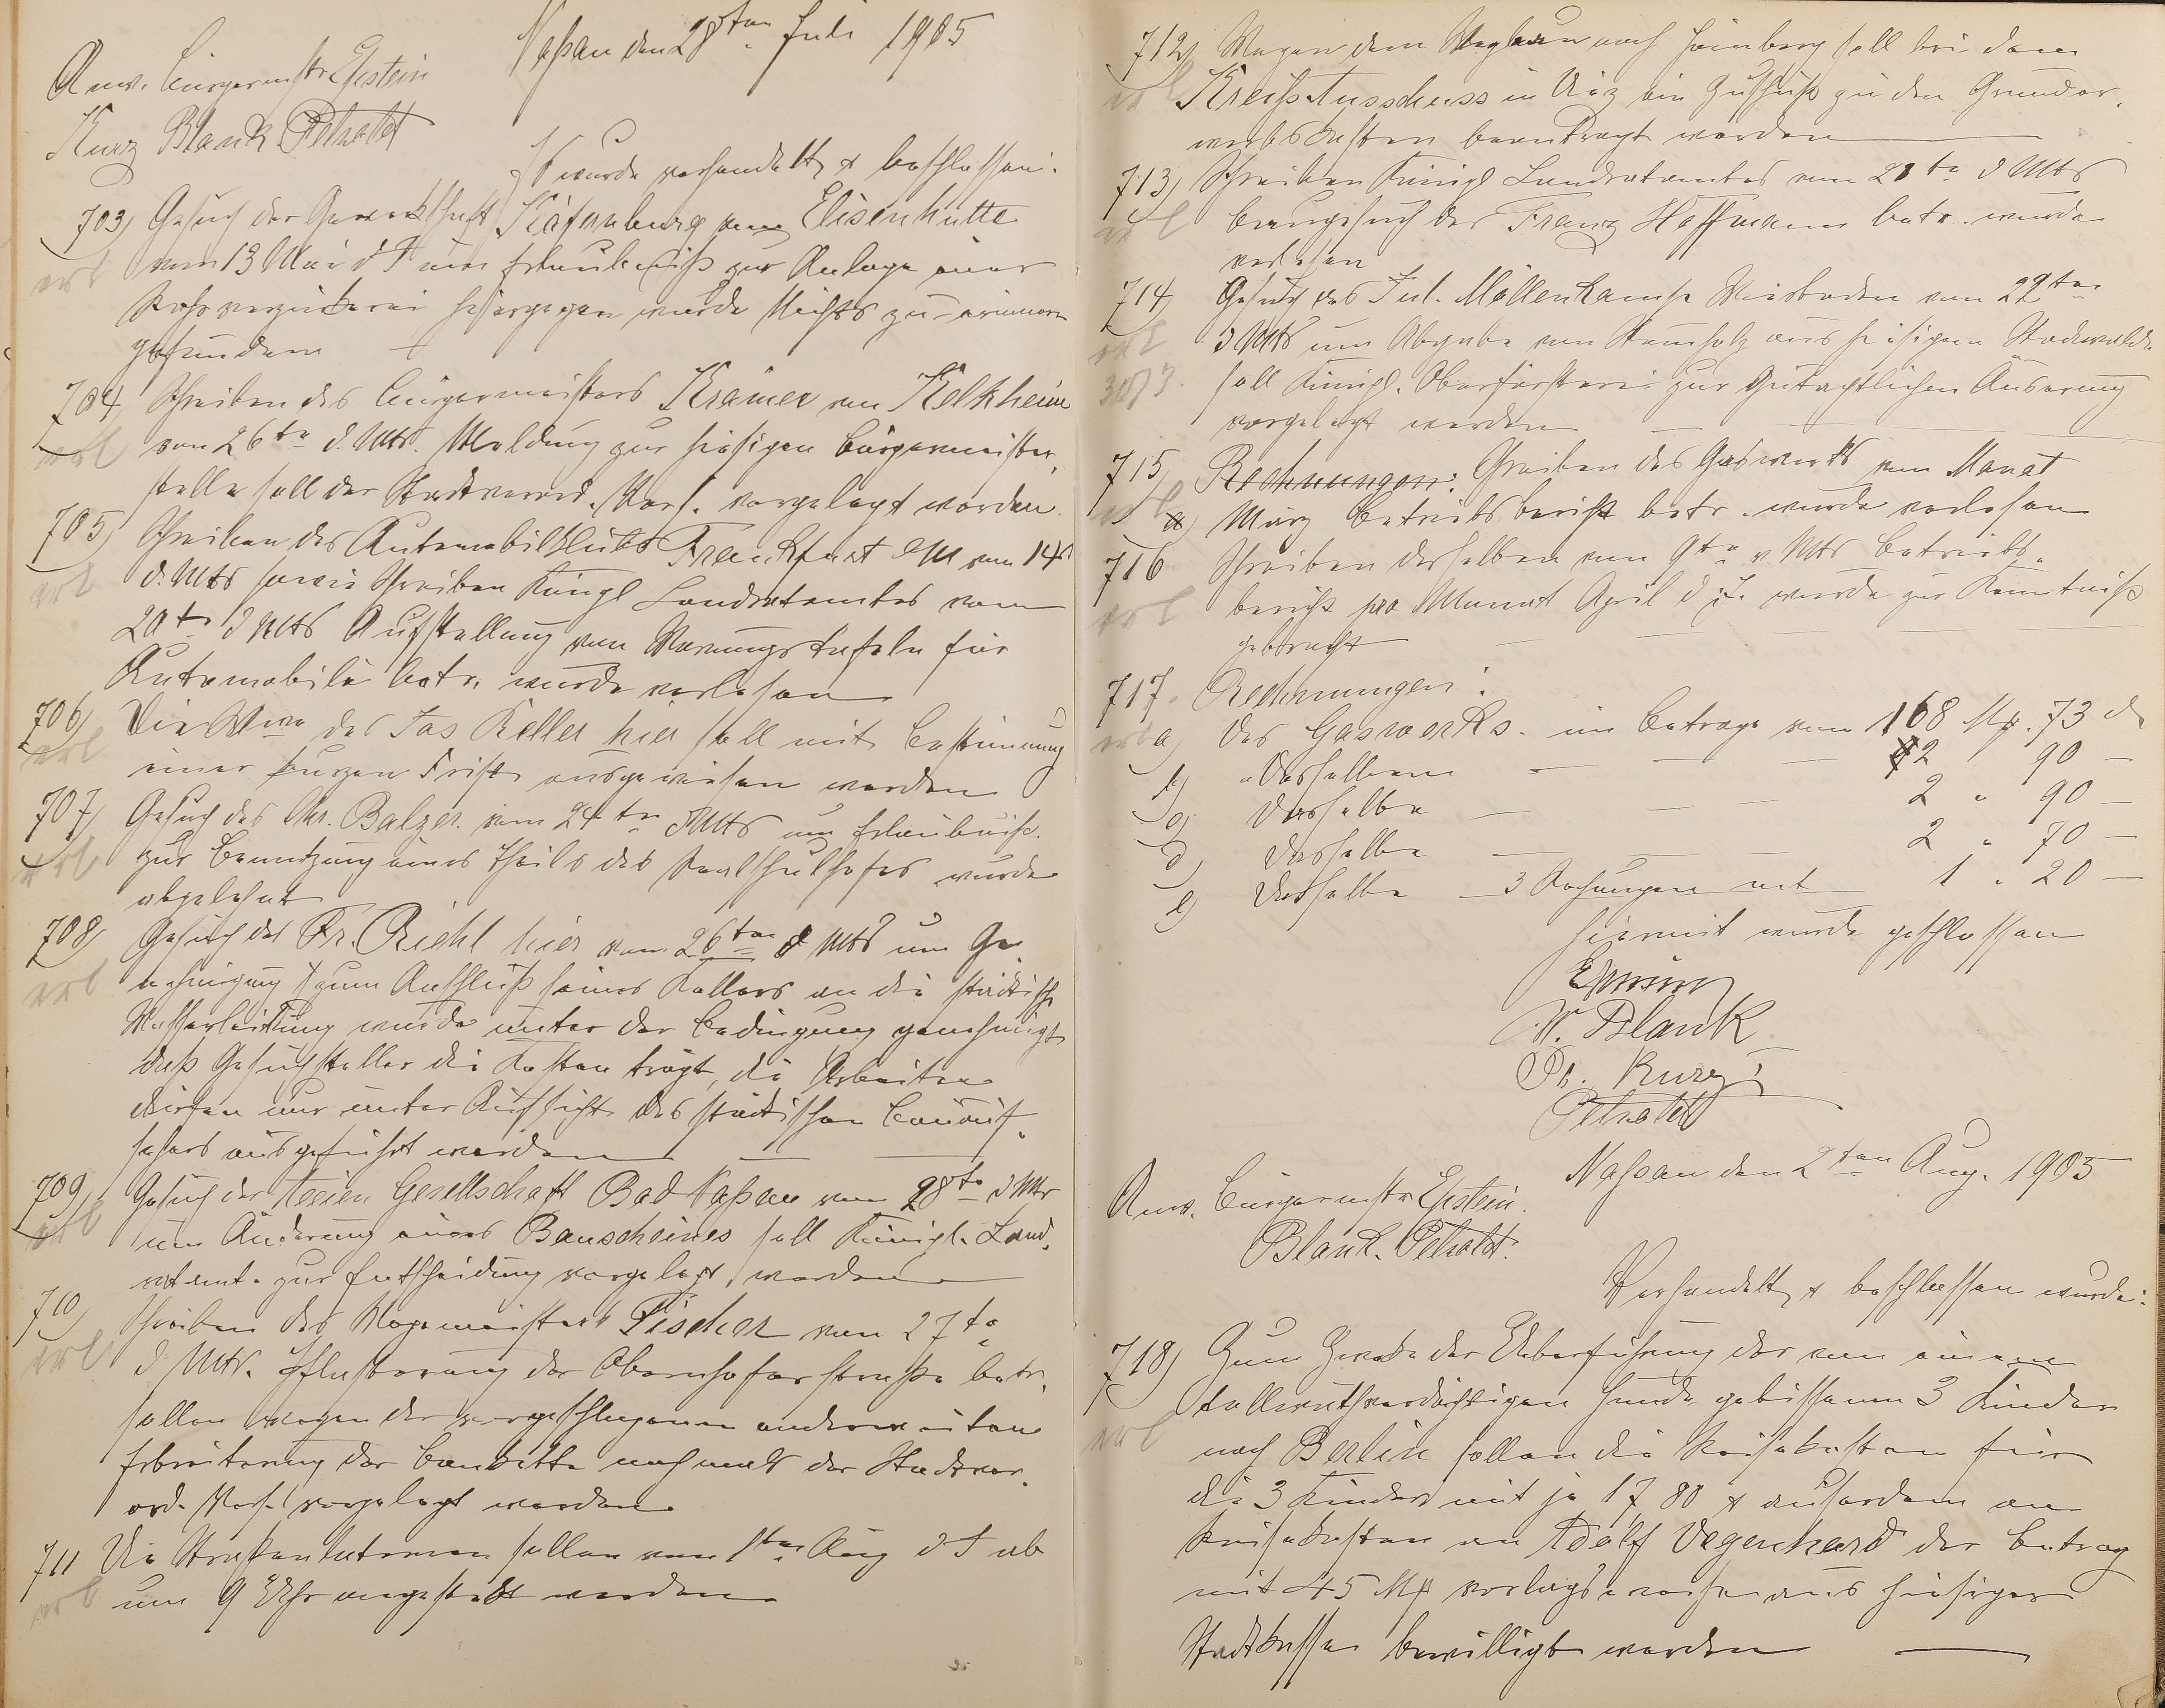 Nassau den 28ten Juli 1905
Anw. Bürgermstr Epstein
Kurz Blank Petzoldt
Es wurde verhandelt & beschlossen:
703) Gesuch der Gewerkschaft Käfernburg von Elisenhütte
erl vom 13 Mai d J um Erlaubniß zur Anlage einer
hiergegen wurde Nichts zu erinnern
gefunden
704 Schreiben des Bürgermeisters Krämer von Kelkheim
erl vom 26ten d. Mts. Meldung zur hiesigen Bürgermeister-
stelle soll der Stadtverord. Vers. vorgelegt werden
705) Schreiben des Automobilklubs Frankfurt a/M vom 14t
erl d. Mts sowie Schreiben Königl Landratamtes vom
20ten d Mts Aufstellung von Warnungstafeln für
Automobile betr. wurde verlesen
706) Die Wwe des Jos Keller hier soll mit Bestimmung
erl einer kurzen Frist ausgewiesen werden
707) Gesuch des Chr. Balzer vom 24ten d Mts um Erlaubniß
erl zur Benutzung eines Theils des Realschulhofes wurde
abgelehnt
708) Gesuch des Fr. Riehl hier vom 26ten d Mts um Ge-
erl nehmigung zum Anschluß seines Kellers an die städtische
Wasserleitung wurde unter der Bedingung genehmigt
daß Gesuchsteller die Kosten trägt, die Arbeiten
dürfen nur unter Aufsicht des städtischen Bauauf-
sehers ausgeführt werden
709) Gesuch der Actien Gesellschaft Bad Nassau vom 28ten d Mts
erl um Änderung eines Bauscheines soll Königl. Land-
ratamt zur Entscheidung vorgelegt werden
710) Schreiben des Wegemeisters Fischer vom 27ten
erl d Mts. Pflasterung der Obernhoferstraße betr.
sollen wegen der vorgeschlagenen anderweiten
Erbreiterung der Bankette nochmals der Stadtver-
ord. Vers. vorgelegt werden
711 Die Straßenlaternen sollen vom 1ten Aug d J ab
erl um 9 Uhr angesteckt werden
712) Wegen dem Wegbau nach Hömberg soll bei dem
erl Kreis Ausschuss in Diez ein Zuschuß zu den Grunder-
werbskosten beantragt werden
713) Schreiben Königl Landratamtes vom 21ten d Mts
erl Baugesuch des Franz Hoffmann betr. wurde
verlesen
714) Gesuch des Jul. Möllenkamp Wiesbaden vom 22ten
erl d Mts um Abgabe von Stammholz aus hiesigem Stadtwalde
soll Königl. Oberförsterei zur gutachtlichen Äuserung
vorgelegt werden
715) Rechnungen: Schreiben des Gaswerks vom Monat
erl a) März Betriebsbericht betr. wurde verlesen
716 Schreiben desselben vom 9ten v Mts Betriebs-
erl bericht pro Monat April d J. wurde zur Kenntniß
gebracht
717. Rechnungen:
erl a) des Gaswerks. im Betrage von 168 Mk. 73 d
b) " Desselben 2 90
c) Desselbe 2 " 90
d) Desselbe 2 " 70
e) Desselbe 3 Rechnungen mit 1 " 20
Hiermit wurde geschlossen
W. Blank
Kurz
Petzoldt
Nassau den 2ten Aug. 1905
Anw. Bürgermstr Epstein.
Blank. Petzoldt.
Verhandelt & beschlossen wurde:
718) Zum Zwecke der Ueberführung der von einem
tollwuthverdächtigen Hunde gebissenen 3 Kinder
erl nach Berlin sollen die Reisekosten für
die 3 Kinder mit je 17 80 & auserdem an
Reisekosten an Adolf Degenhard der Betrag
mit 45 Mk vorlagsweise aus hiesiger
Stadtkasse bewilligt werden